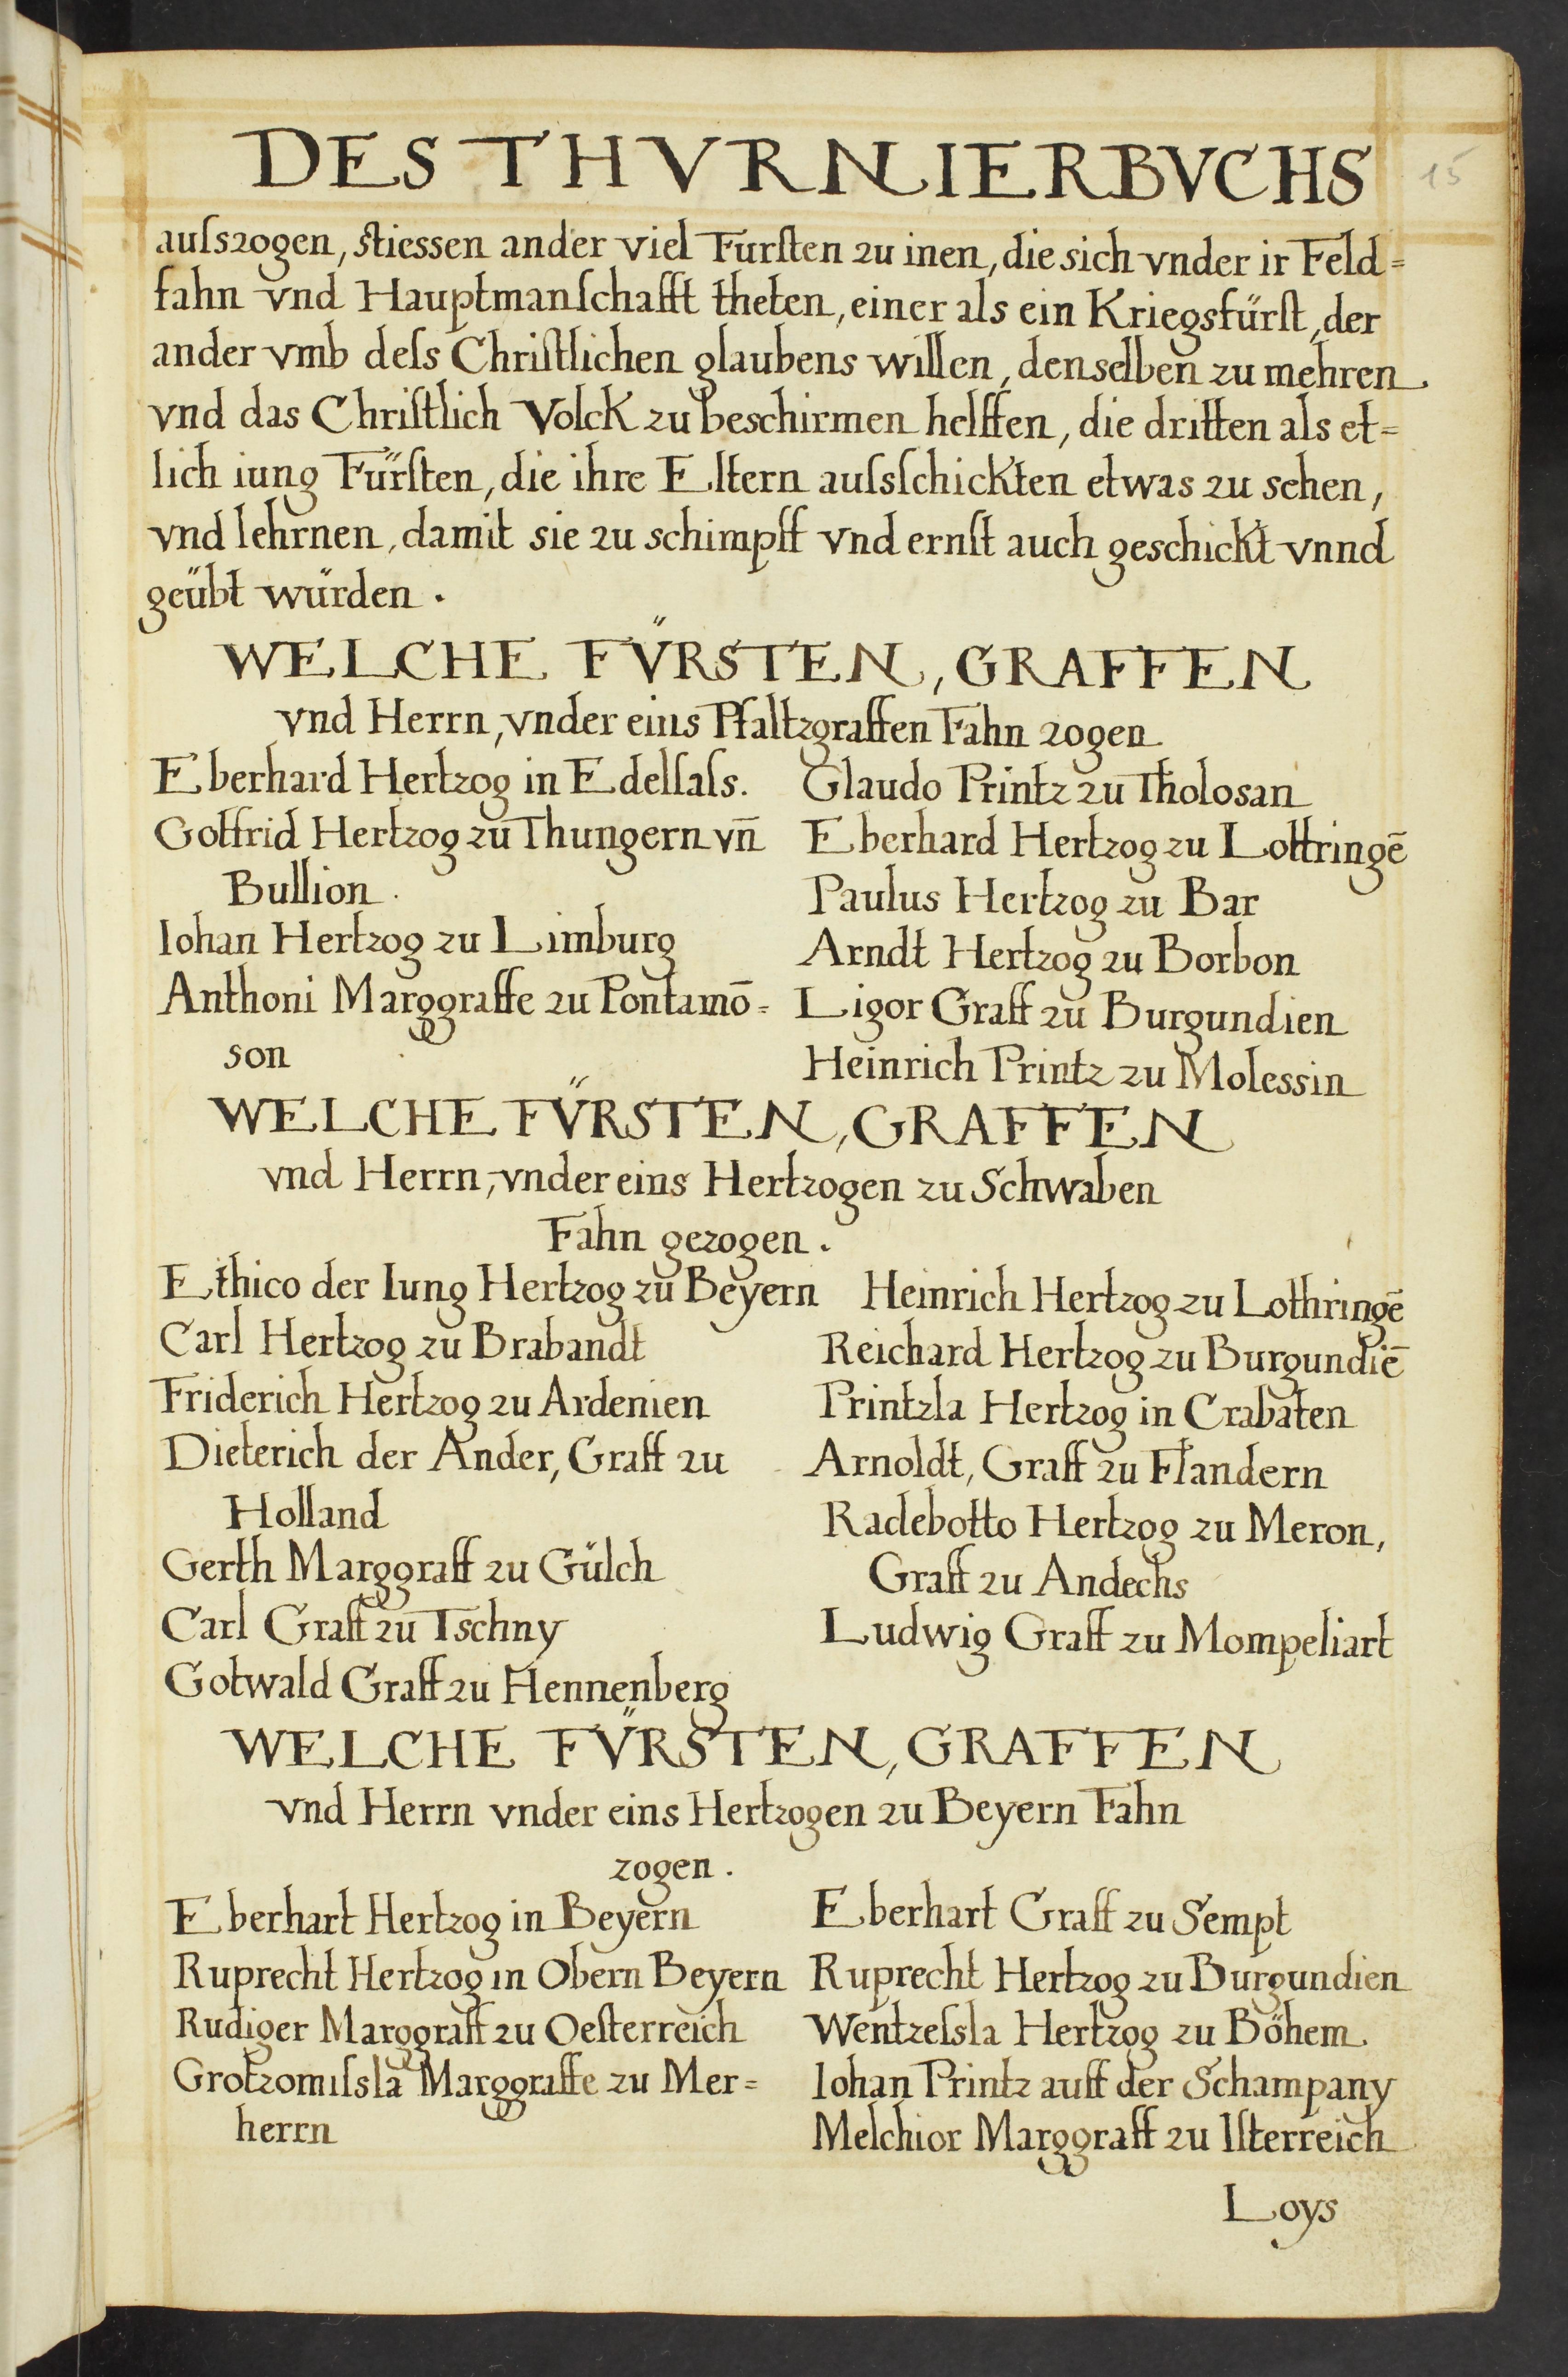 DES THVRNIERBVCHS
15
auſszogen, ſtiessen ander viel Furſten zu inen, die sich vnder ir Feld=
fahn vnd Hauptmanſchafft theten, einer als ein Kriegsfürſt, der
ander vmb deſs Chriſtlichen glaubens willen, denselben zu mehren
vnd das Chriſtlich Volck zu beschirmen helffen, die dritten als et=
lich iung Fürſten, die ihre Eltern auſsſchickten etwas zu sehen,
vnd lehrnen, damit sie zu schimpff vnd ernſt auch geschickt vnnd
geübt würden.
WELCHE FV̈RSTEN, GRAFFEN
vnd Herrn, vnder eins Pfaltzgraffen Fahn zogen
Eberhard Hertzog in Edelſaſs.
Gotfrid Hertzog zu Thungern vn̄
Bullion.
Iohan Hertzog zu Limburg
Anthoni Marggraffe zu Pontamō=
son
Glaudo Printz zu Tholosan
Eberhard Hertzog zu Lottringē
Paulus Hertzog zu Bar
Arndt Hertzog zu Borbon
Ligor Graff zu Burgundien
Heinrich Printz zu Molessin
WELCHE FV̈RSTEN, GRAFFEN
vnd Herrn, vnder eins Hertzogen zu Schwaben
Fahn gezogen.
Ethico der Iung Hertzog zu Beyern
Carl Hertzog zu Brabandt
Friderich Hertzog zu Ardenien
Dieterich der Ander, Graff zu
Holland
Gerth Marggraff zu Gülch
Carl Graff zu Tschny
Gotwald Graff zu Hennenberg
Heinrich Hertzog zu Lothringē
Reichard Hertzog zu Burgundiē
Printzla Hertzog in Crabaten
Arnoldt, Graff zu Flandern
Radebotto Hertzog zu Meron,
Graff zu Andechs
Ludwig Graff zu Mompeliart
WELCHE FV̈RSTEN, GRAFFEN
vnd Herrn vnder eins Hertzogen zu Beyern Fahn
zogen.
Eberhart Hertzog in Beyern
Ruprecht Hertzog in Obern Beyern
Rudiger Marggraff zu Oeſterreich
Grotzomiſsla Marggraffe zu Mer=
herrn
Eberhart Graff zu Sempt
Ruprecht Hertzog zu Burgundien
Wentzeſsla Hertzog zu Böhem
Iohan Printz auff der Schampany
Melchior Marggraff zu Iſterreich
Loys